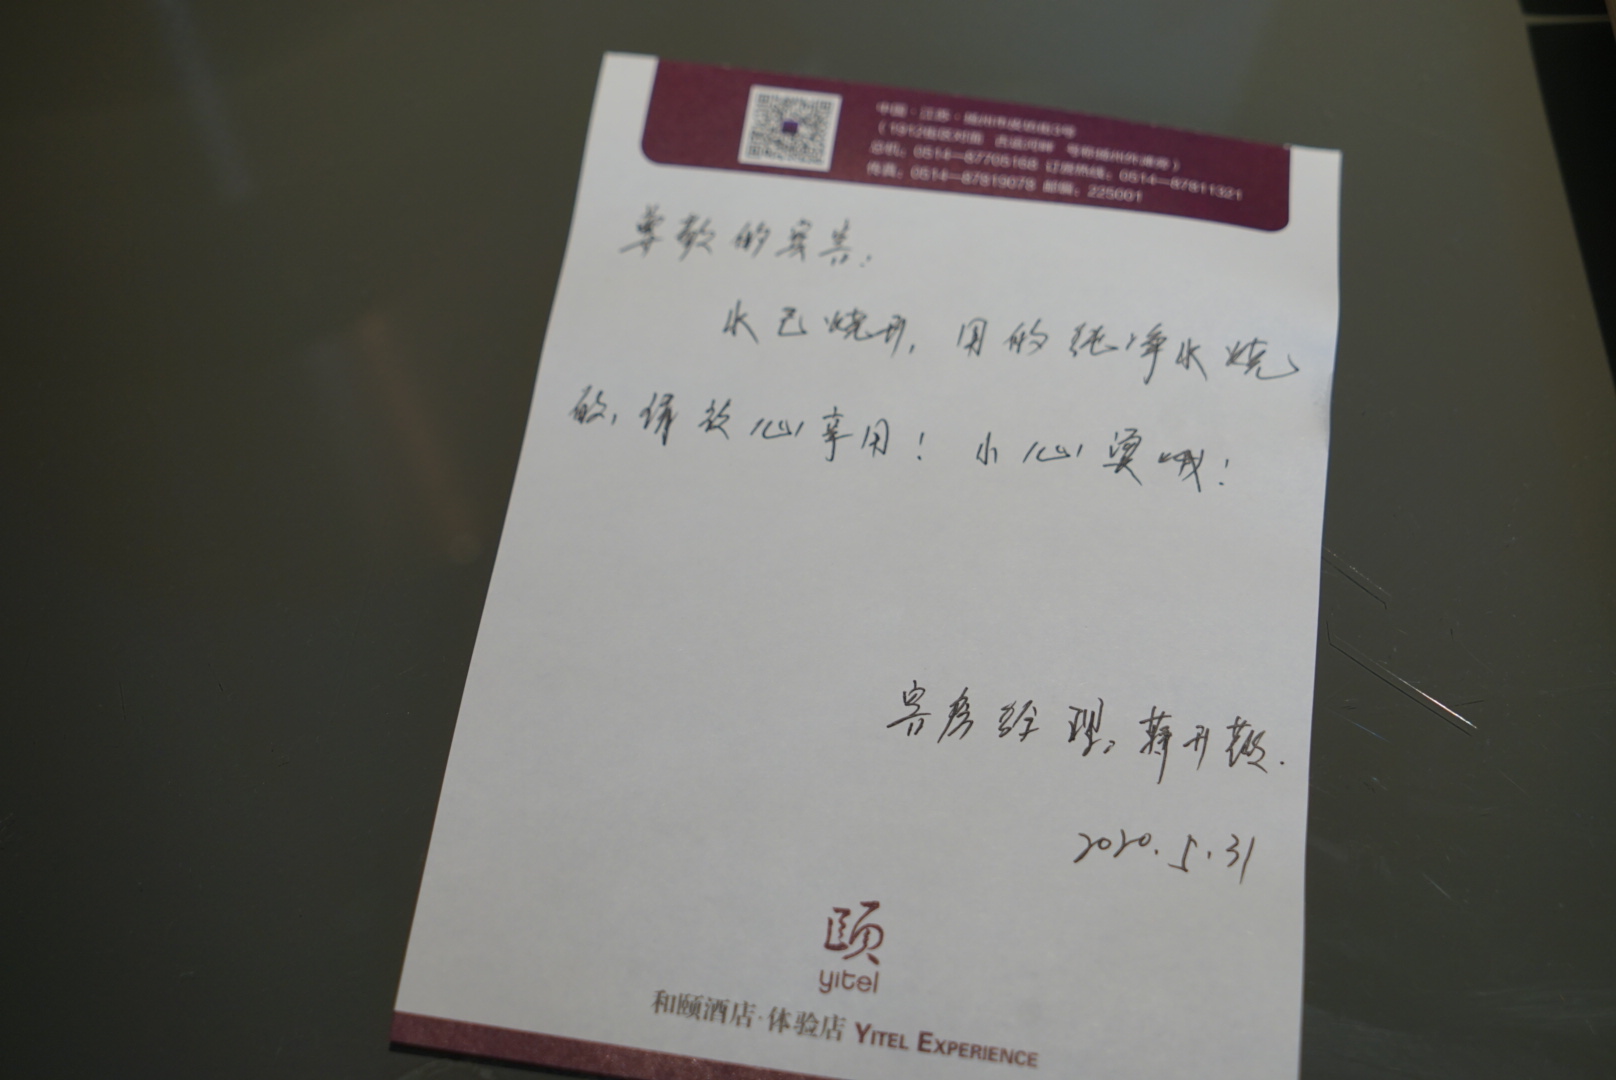 中国·江苏·扬州市盐阜路3号
总机：0514—87705168 订房热线：0514—87811321
传真：0514—87819078 邮编：225001
尊敬的宾客：
水已烧开，用的纯净水烧
的，请放心享用！小心烫哦！
客房经理，蒋开
2020.5.31
颐
yitel
和颐酒店·体验店 YITEL EXPERIENCE